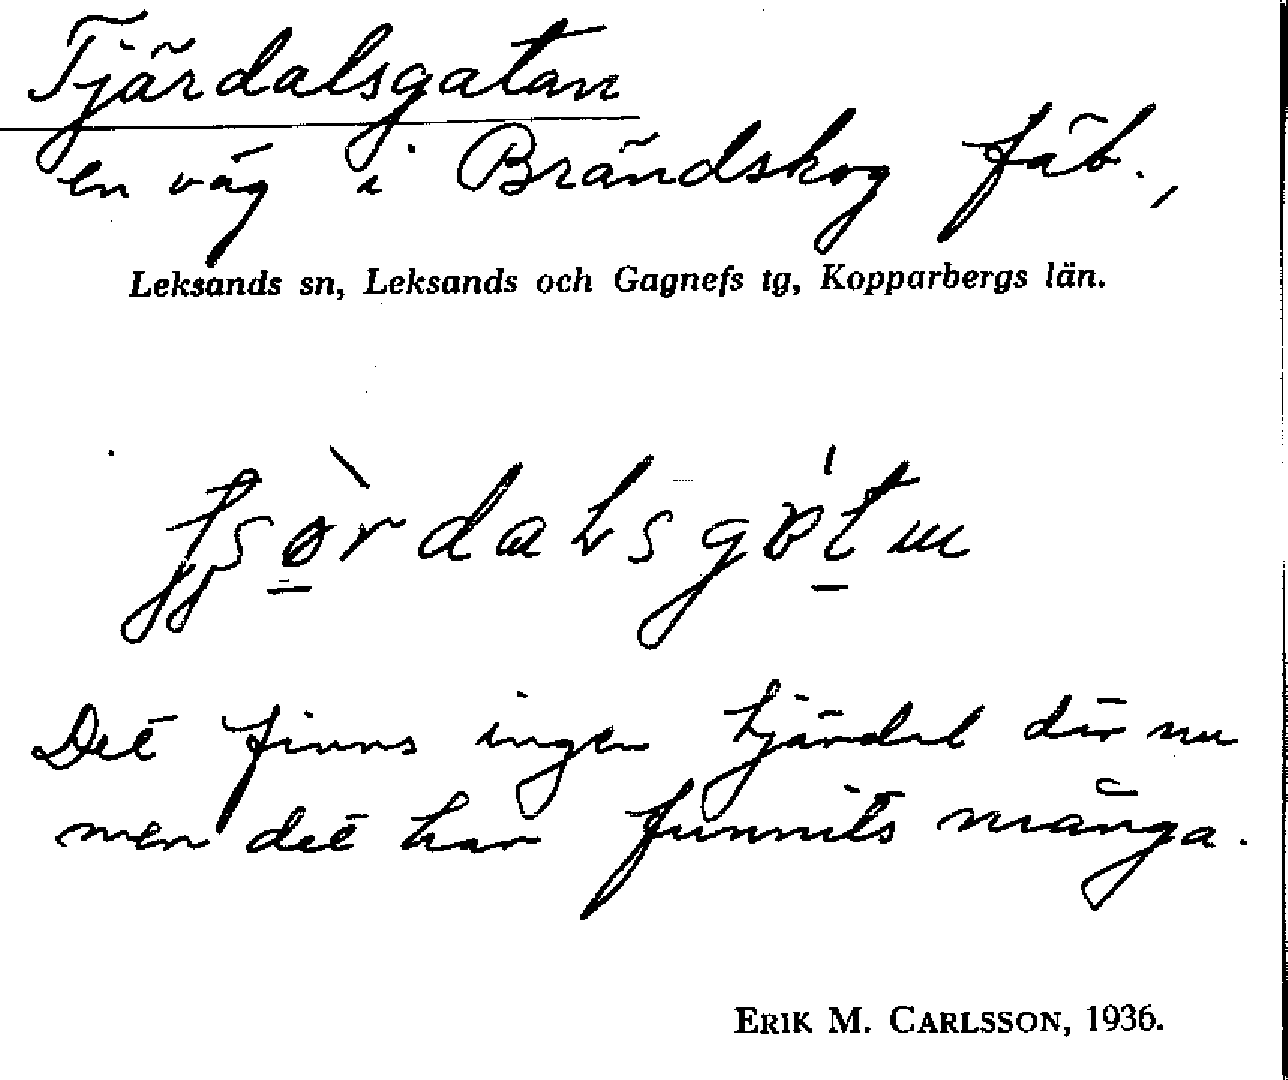 Tjärdalsgatan
en väg i Brändskog fäb.,
Leksands sn, Leksands och Gagnefs tg, Kopparbergs län.
Det finns ingen tjärdal där nu
men det har funnits många.
ERIK M. CARLSSON, 1936.